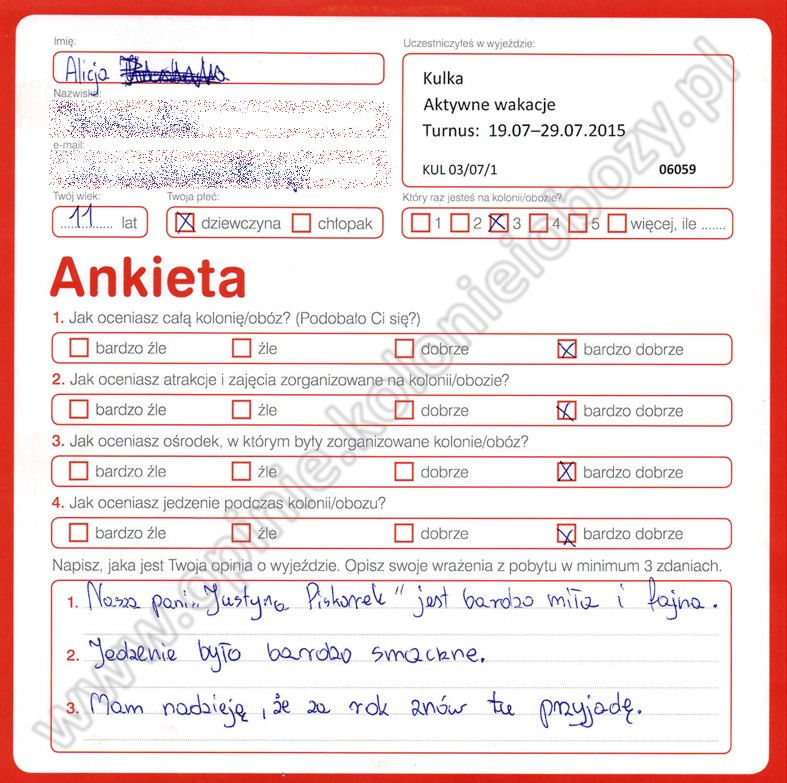 Imię:
Alicja
Nazwisko:
e-mail:
Twój wiek:
11 lat
Twoja płeć:
dziewczyna chłopak
Uczestniczyłeś w wyjeździe:
Kulka
Aktywne wakacje
Turnus: 19.07–29.07.2015
KUL 03/07/1 06059
Który raz jesteś na kolonii/obozie?
1 2 3 4 5 więcej, ile .......
Ankieta
1. Jak oceniasz całą kolonię/obóz? (Podobało Ci się?)
bardzo źle źle dobrze bardzo dobrze
2. Jak oceniasz atrakcje i zajęcia zorganizowane na kolonii/obozie?
bardzo źle źle dobrze bardzo dobrze
3. Jak oceniasz ośrodek, w którym były zorganizowane kolonie/obóz?
bardzo źle źle dobrze bardzo dobrze
4. Jak oceniasz jedzenie podczas kolonii/obozu?
bardzo źle źle dobrze bardzo dobrze
Napisz, jaka jest Twoja opinia o wyjeździe. Opisz swoje wrażenia z pobytu w minimum 3 zdaniach.
1. Nasza pani „Justyna Piskorek" jest bardzo miła i fajna.
2. Jedzenie było bardzo smaczne.
3. Mam nadzieję, że za rok znów tu przyjadę.
www.opinie.kolonieiobozy.pl